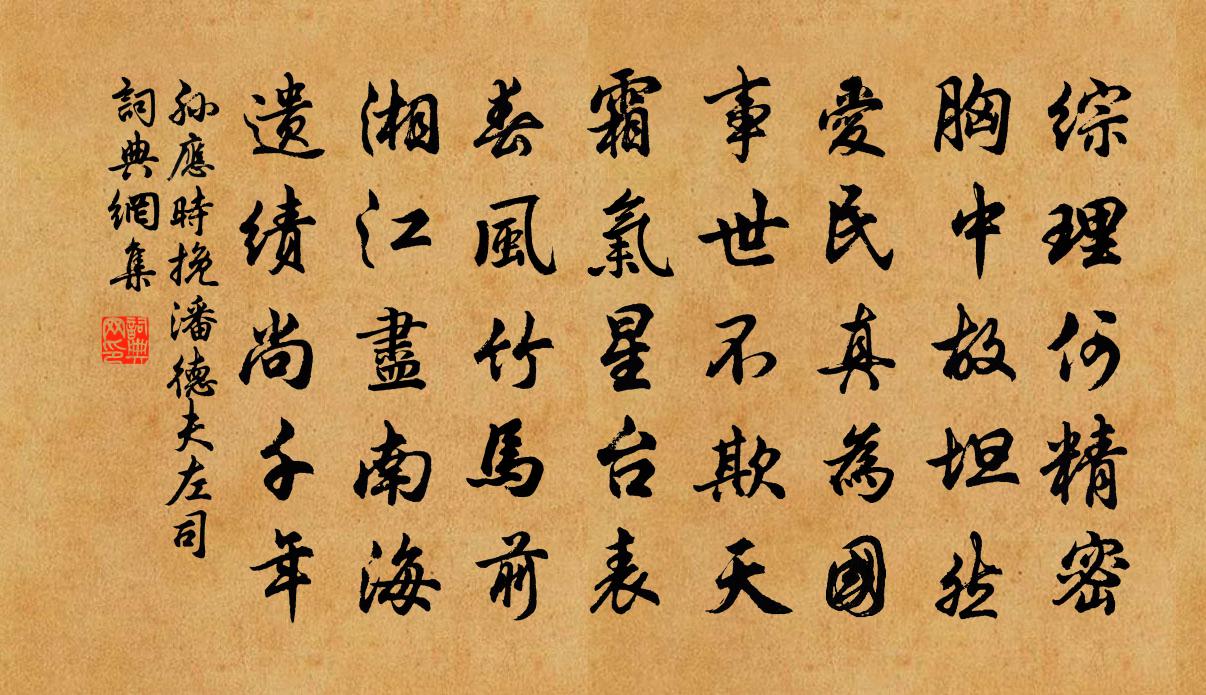 综理何精密
胸中故坦然
愛民真為國
事世不欺天
霜氣星台表
春風竹馬前
湘江盡南海
遗绩尚千年
孙應時挽潘德夫左司
詞典網集
詞典网印